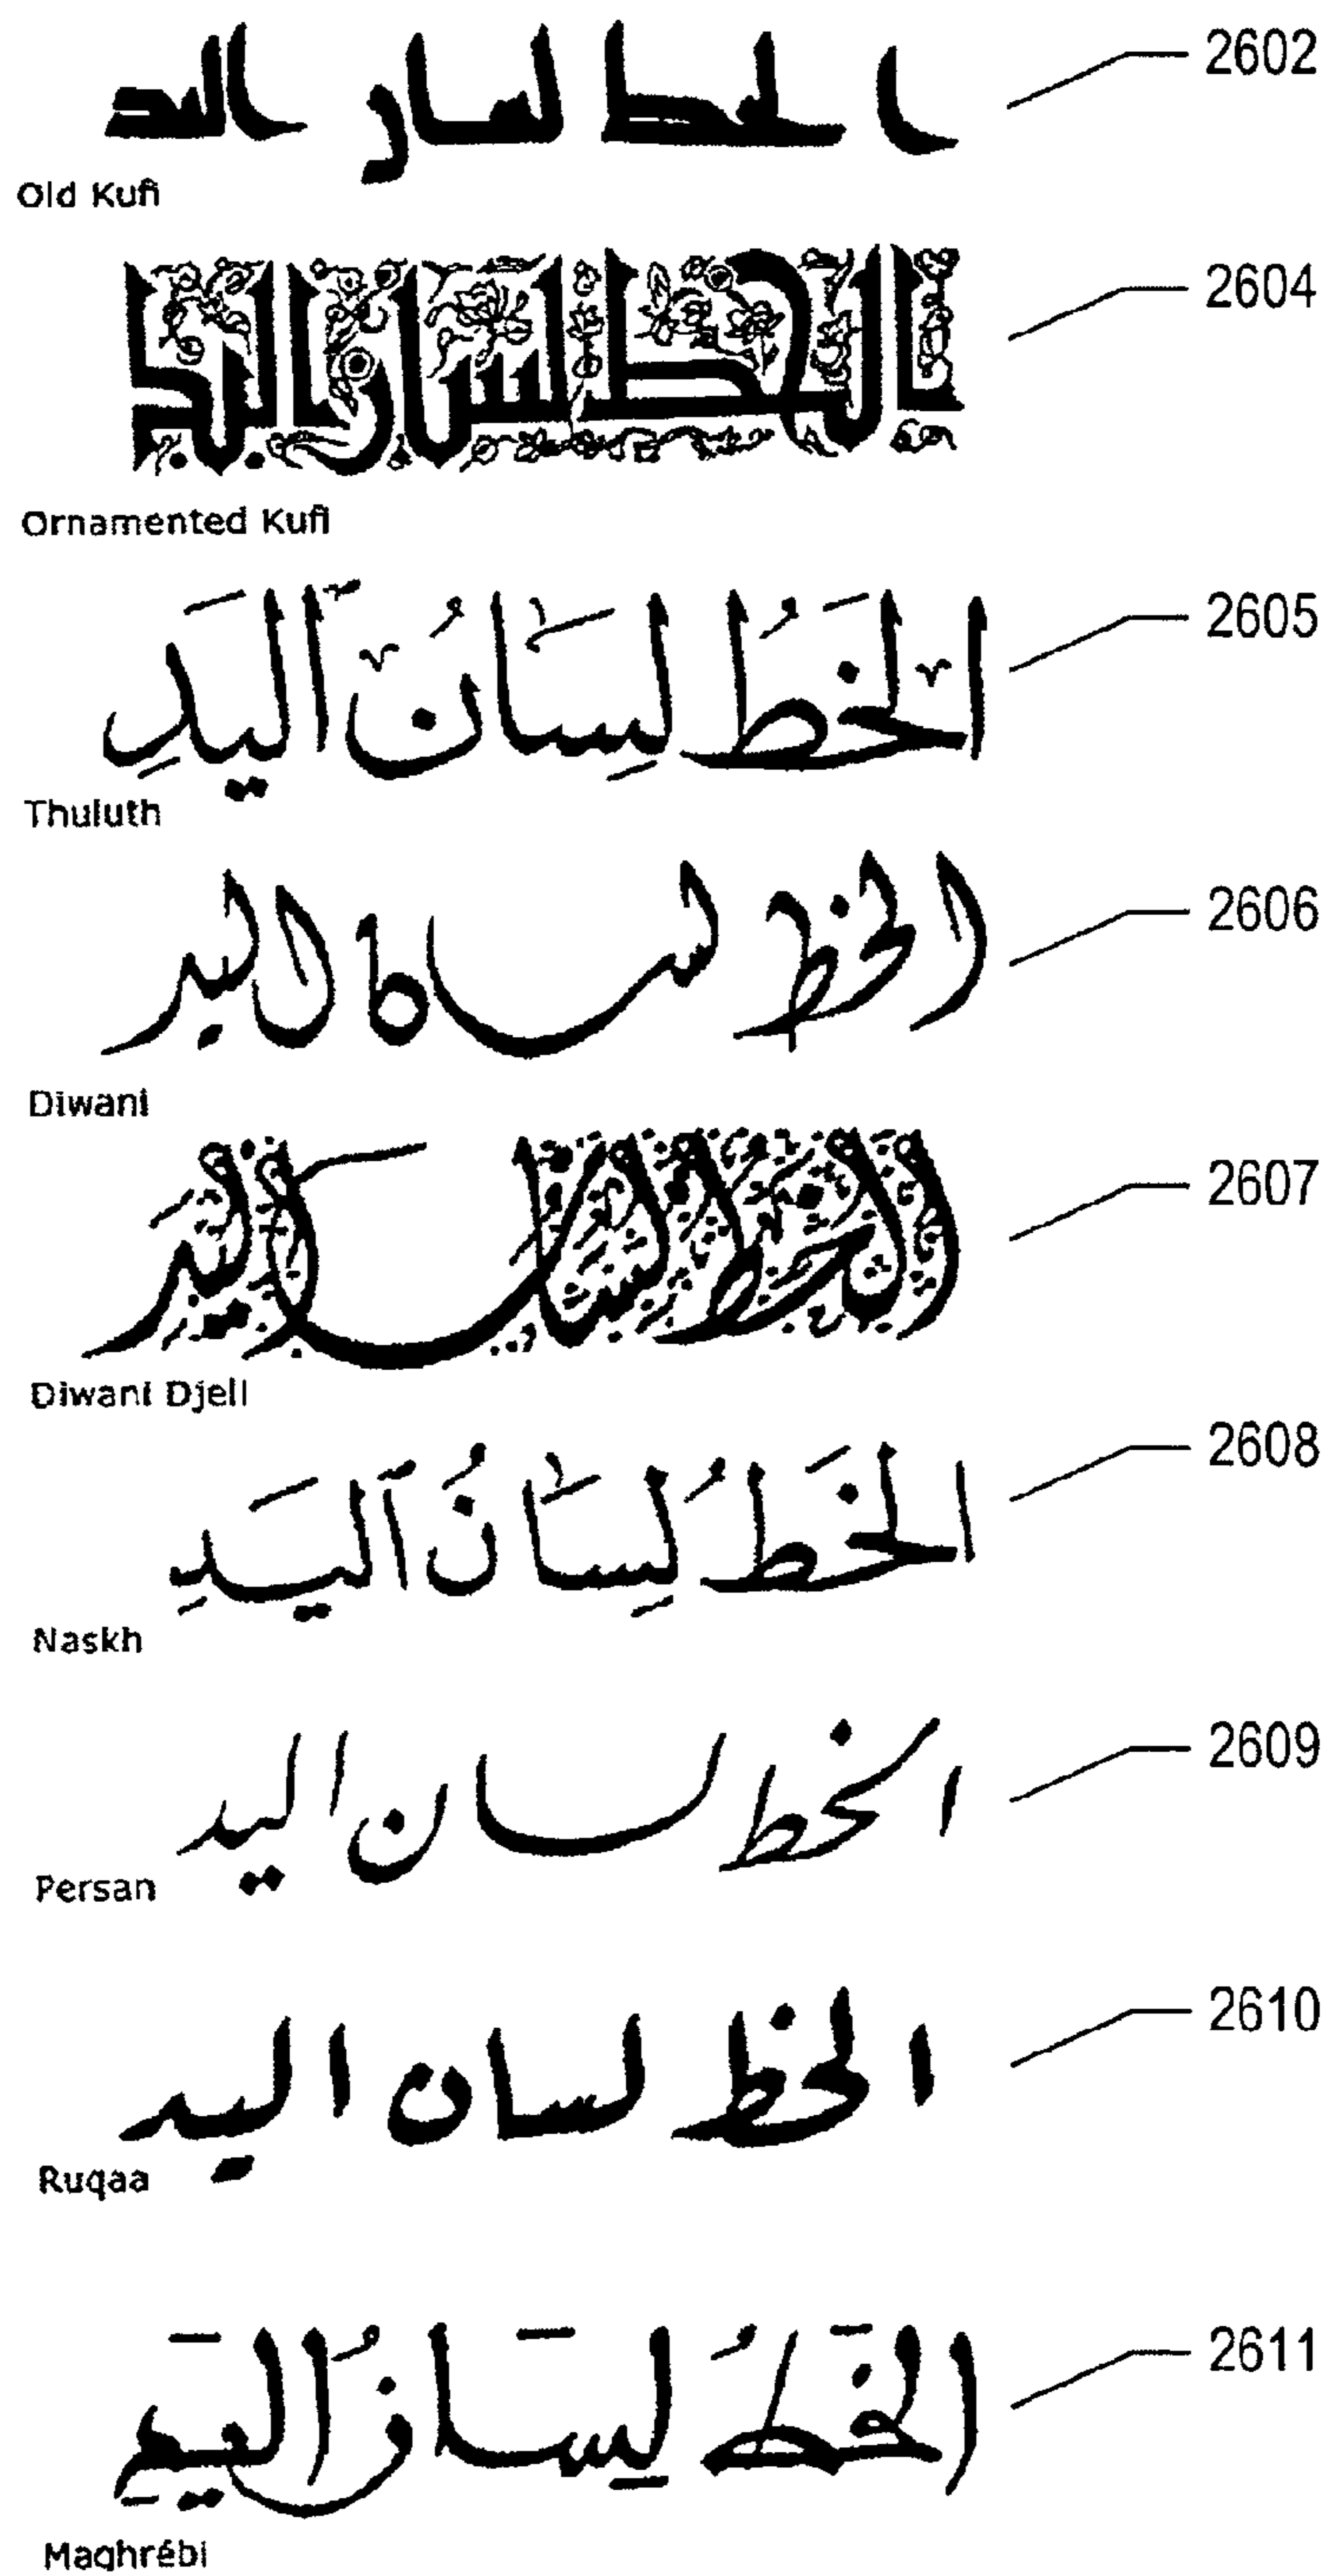 الخط لسان اليد 2602
Old Kufi
الخط لسان اليد 2604
Ornamented Kufi
الخَطُّ لِسَانُ الْيَدِ 2605
Thuluth
الخط لسان اليد 2606
Diwani
الخط لسان اليد 2607
Diwani Djeli
الخَطُّ لِسَانُ الْيَدِ 2608
Naskh
الخط لسان اليد 2609
Persan
الخط لسان اليد 2610
Ruqaa
الخَطُ لِسَانُ اليَدِ 2611
Maghrébi